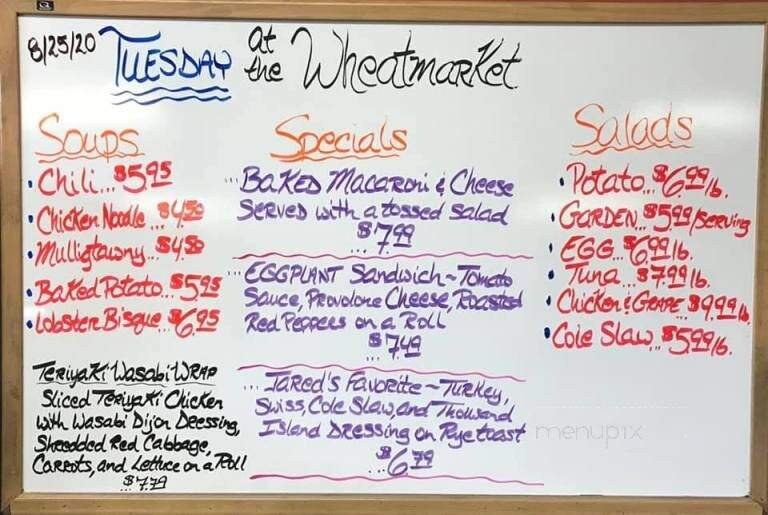 8/25/20 TUESDAY at the Wheatmarket
Soups
• Chili... $5.95
• Chicken Noodle... $4.50
• Mulligtawny... $4.50
• Baked Potato... $5.95
• Lobster Bisque... $6.95
Teriyaki Wasabi Wrap
Sliced Teriyaki Chicken
with Wasabi Dijon Dressing,
Shredded Red Cabbage,
Carrots, and Lettuce on a Roll
...$7.79
Specials
... Baked Macaroni & Cheese
Served with a tossed salad
...$7.99
... EGGPLANT Sandwich ~ Tomato
Sauce, Provolone Cheese, Roasted
Red Peppers on a Roll
...$7.49
... Jared's Favorite ~ Turkey,
Swiss, Cole Slaw, and Thousand
Island Dressing on Rye toast
...$6.79
Salads
• Potato... $6.99 lb.
• GARDEN... $5.99/serving
• EGG... $6.99 lb.
• Tuna... $7.99 lb.
• Chicken & Grape... $9.99 lb.
• Cole Slaw... $5.99 lb.
menupix